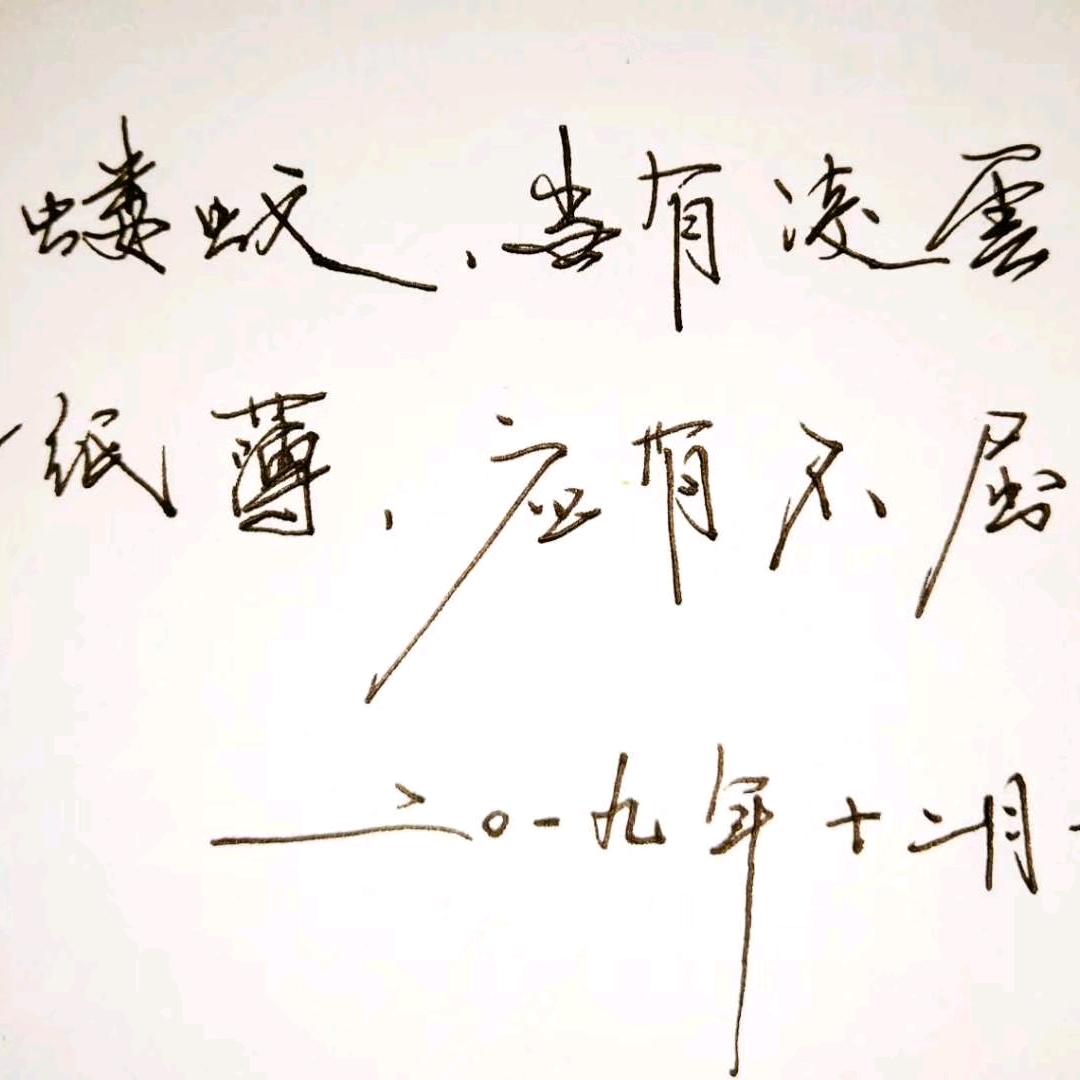 蝼蚁，當有凌雲
纸薄，应有不屈
二〇一九年十二月